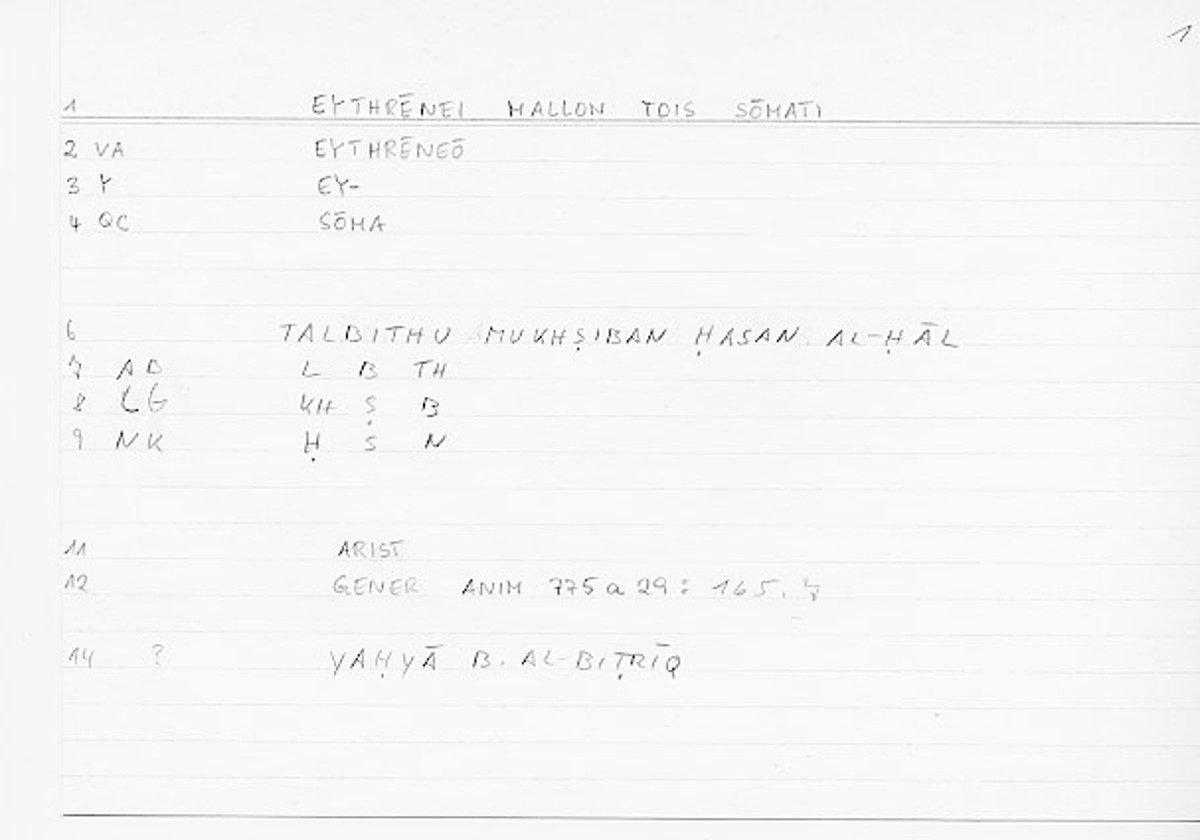 1
1 EYTHRĒNEI MALLON TOIS SŌMATI
2 VA EYTHRĒNEŌ
3 Y EY-
4 QC SŌMA
6 TALBITHU MUKHṢIBAN ḤASAN AL-ḤĀL
7 AB L B TH
8 LG KH Ṣ B
9 NK Ḥ S N
11 ARIST
12 GENER ANIM 775 a 29 : 165, 7
14 ? YAḤYĀ B. AL-BIṬRĪQ